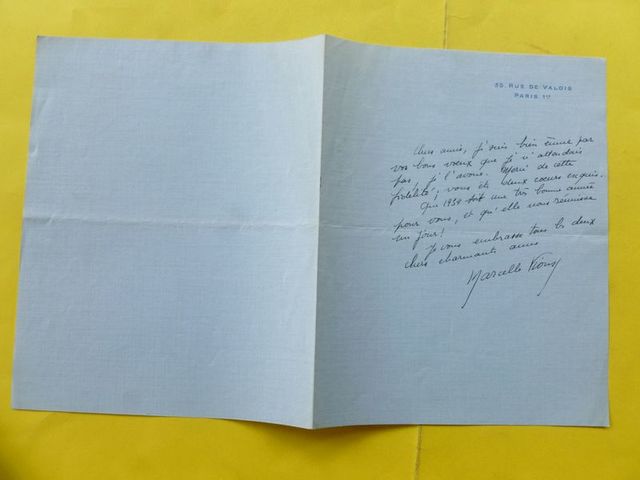 35, RUE DE VALOIS
PARIS 1er
Chers amis, je suis bien émue par
vos bons voeux que je n'attendais
pas, je l'avoue. Merci de cette
fidélité, vous êtes deux coeurs exquis.
Que 1939 soit une très bonne année
pour vous, et qu'elle nous réunisse
un jour!
Je vous embrasse tous les deux
chers charmants amis
Marcelle